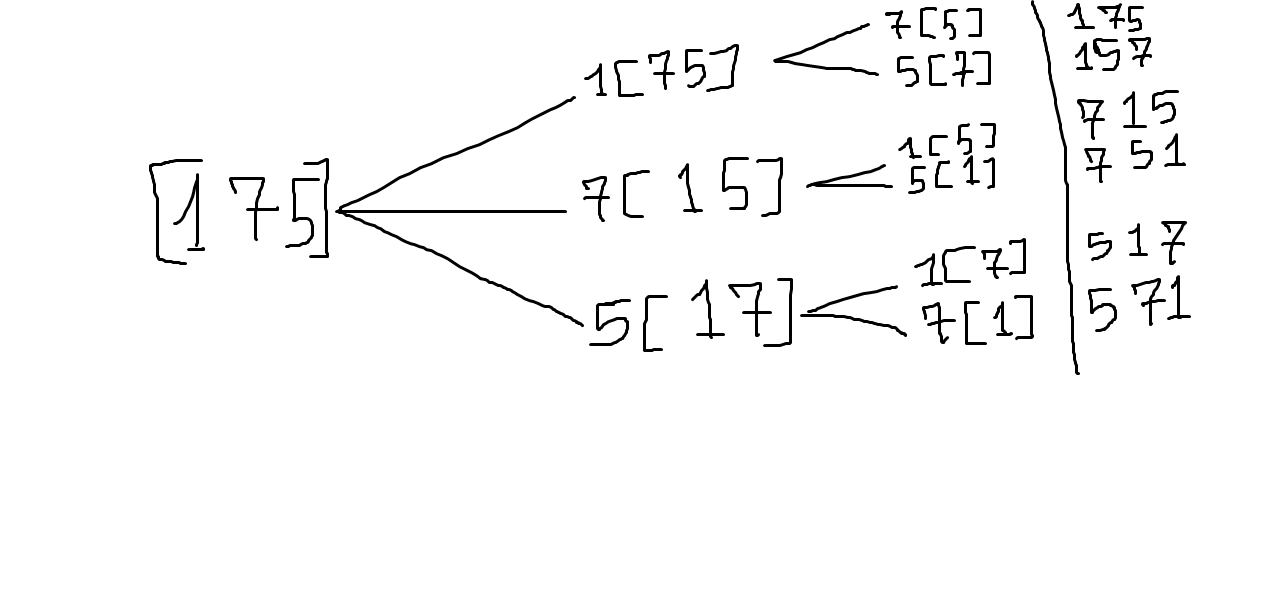 [1 7 5]
1[7 5]
7[ 1 5]
5[ 1 7]
7[5]
5[7]
1[5]
5[1]
1[7]
7[1]
1 7 5
1 5 7
7 1 5
7 5 1
5 1 7
5 7 1